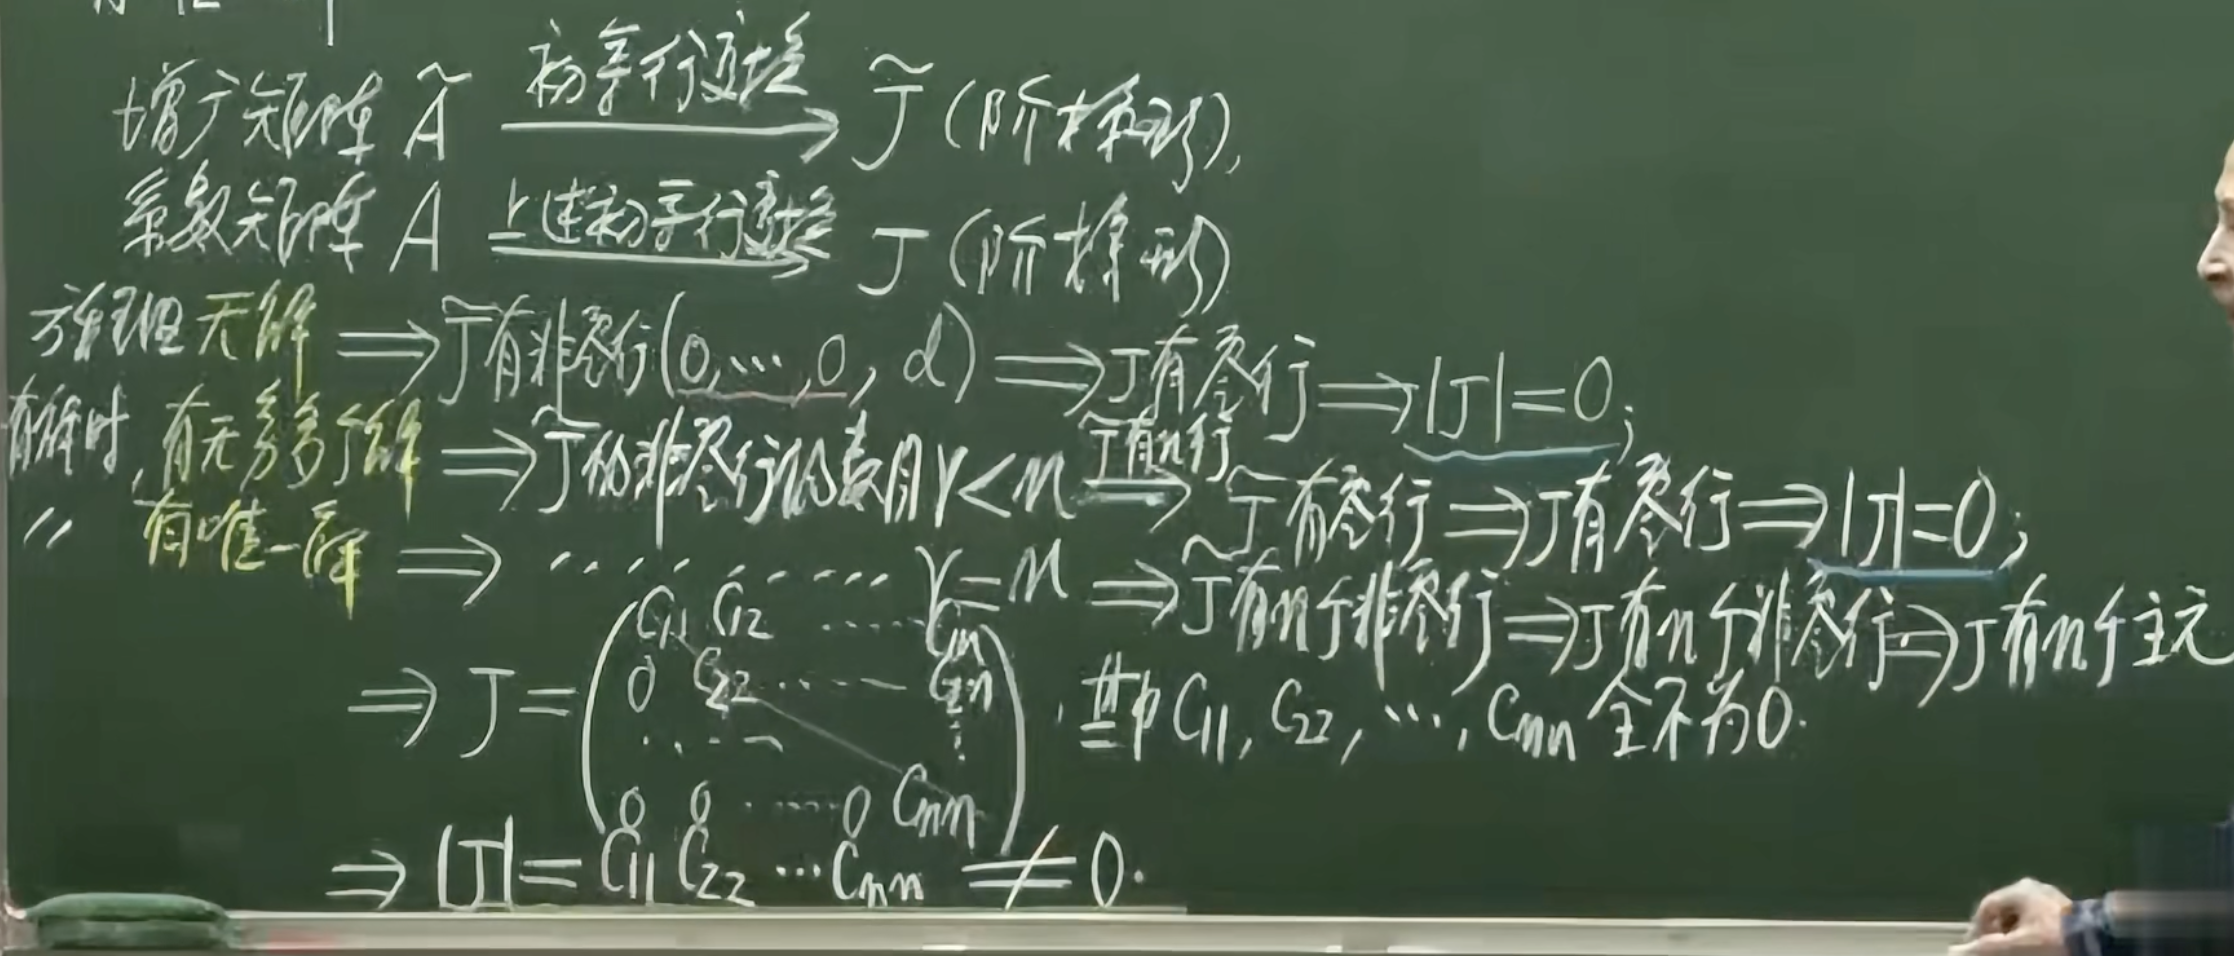 增广矩阵 Ã 初等行变换 → J̃ (阶梯形),
系数矩阵 A 上述初等行变换 → J (阶梯形)
方程组无解 ⟹ J̃有非零行(0,⋯,0, d) ⟹ J有零行 ⟹ |J|=0;
有解时,有无穷多个解 ⟹ J̃的非零行的数目r<n J̃有n行 ⟹ J̃有零行 ⟹ J有零行 ⟹ |J|=0;
〃 有唯一解 ⟹ ⋯⋯⋯⋯ r=n ⟹ J̃有n个非零行 ⟹ J有n个非零行 ⟹ J有n个主元
⟹ J = ( C₁₁ C₁₂ ⋯⋯ C₁ₙ
0 C₂₂ ⋯⋯ C₂ₙ
⋯⋯ ⋮
0 0 ⋯⋯ 0 Cₙₙ ) , 其中 C₁₁, C₂₂, ⋯, Cₙₙ 全不为0.
⟹ |J| = C₁₁ C₂₂ ⋯ Cₙₙ ≠ 0.